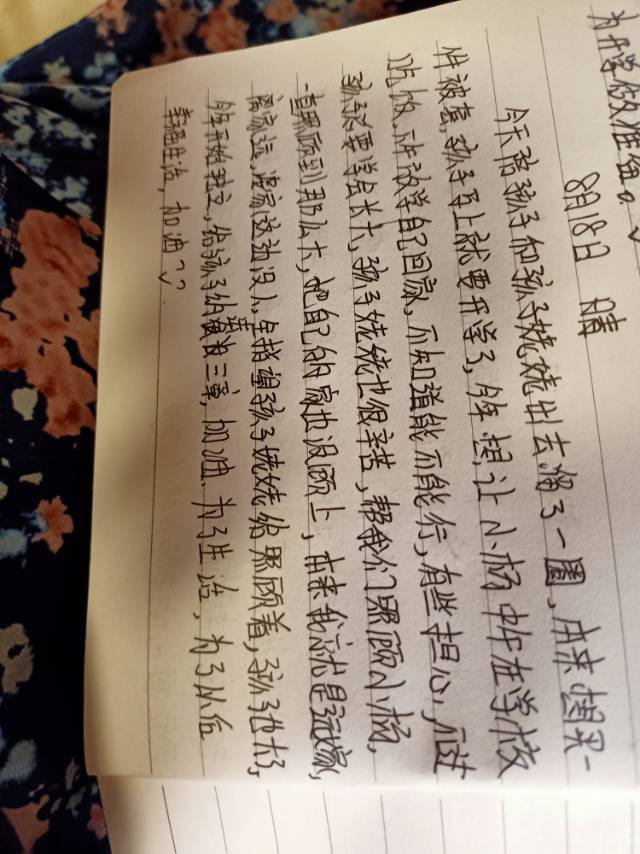 为开学做准备。
8月18日 晴
今天陪孩子和孩子姥姥出去溜了一圈,本来想买一
件被套,孩子马上就要开学了,今年想让小杨中午在学校
吃饭,下午放学自己回家,不知道能不能行,有些担心,不过
孩子总要学会长大,孩子姥姥也很辛苦,帮我们照顾小杨,
一直照顾到那么大,她自己的家也没顾上,本来我就是远嫁,
离家远,婆家这边没人,全指望孩子姥姥给照顾着,孩子也大了,
今年开始独立,给孩子约法三章,加油,为了生活,为了以后
幸福生活,加油